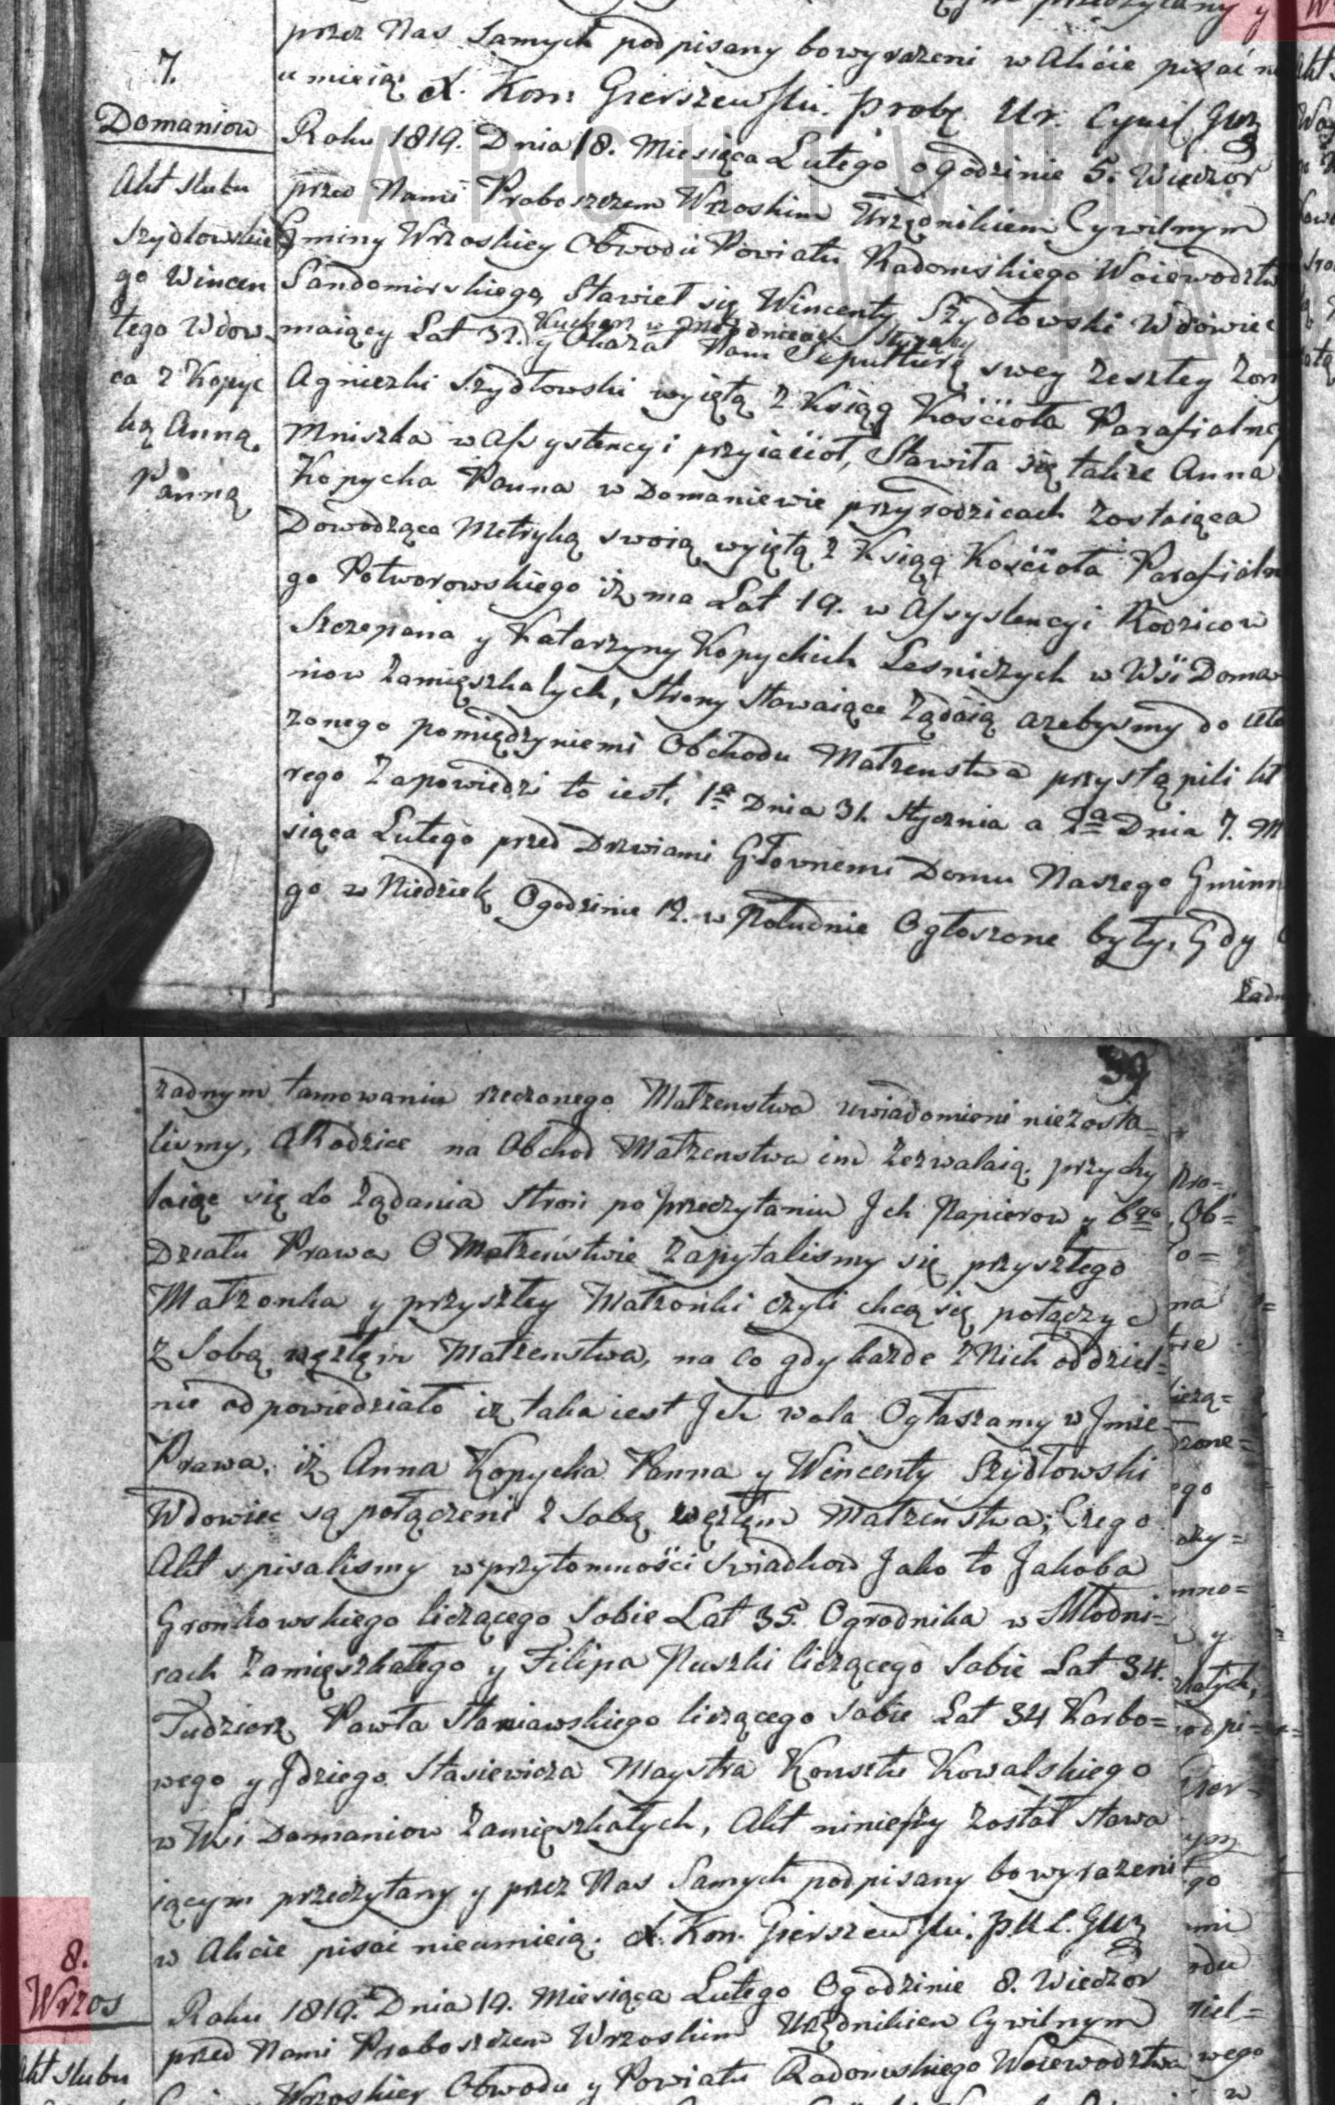 przez Nas Samych podpisany bo wyrażeni w Akcie pisać
umieią. X. Kon: Gierszewski. Prob. Ur. Cywil GWz
7.
Domaniow
Akt slubu
Szydlowskie
go Wincen
tego Wdow-
ca z Kopyc
ką Anną
Panną
Roku 1819. Dnia 18. Miesiąca Lutego o godzinie 5. Wieczor
przed Nami Proboszczem Wrzoskim Urzędnikiem Cywilnym
Gminy Wrzoskiey Obwodu Powiatu Radomskiego Woiewodztw
Sandomirskiego, Stawiet się Wincenty Szydłowski Wdowiec
Kucharz w Młodnicach Służący
maiący Lat 32. y Okazał Nam Sepulturę swey Zeszłey Żon
Agnieszki Szydłowski wyiętą z Ksiąg Kościoła Parafialne
Mniszka w Assystencyi przyiaciół, Stawiła się także Anna
Kopycka Panna w Domaniewie przy rodzicach zostaiąca
Dowodząca Metryką swoią wyiętą z Ksiąg Kościoła Parafialn
go Potworowskiego iż ma Lat 19. w Assystencyi Rodzicow
Szczepana y Katarzyny Kopyckich Lesniczych w Wsi Doma-
niow Zamięszkałych, Strony stawaiące Żądaią azebysmy do uło
zonego pomiędzy niemi Obchodu Małżenstwa przystąpili kt
rego Zapowiedzi to iest, 1a Dnia 31. Stycznia a 2a Dnia 7. M
siąca Lutego przed Drzwiami Głownemi Domu Naszego Gminn
go w Niedzielę O godzinie 12. w Południe Ogłoszone były, Gdy
Żadn
39
żadnym tamowaniu rzeczonego Małżenstwa uwiadomieni niezosta-
lismy, A Rodzice na Obchod Małżenstwa im Zezwalaią, przychy
laiąc się do Żądania Stron po przeczytaniu Ich Papierow y 6go
Działu Prawa O Małżeństwie Zapytalismy się przyszłego
Małżonka y przyszłey Małżonki czyli chcą się połączyć
z Sobą węzłem Małżenstwa, na co gdy każde z Nich oddziel-
nie odpowiedziało iż taka iest Ich wola Ogłaszamy w Imie
Prawa, iż Anna Kopycka Panna y Wincenty Szydłowski
Wdowiec są połączeni z Sobą węzłem Małżenstwa; Czego
Akt spisalismy w przytomności Swiadkow Jako to Jakoba
Gronkowskiego liczącego Sobie Lat 35. Ogrodnika w Młodni-
cach Zamięszkałego y Filipa Puszki liczącego Sobie Lat 34.
Tudzierz Pawła Staniawskiego liczącego Sobie Lat 34 Karbo=
wego y Idziego Stasiewicza Maystra Konsztu Kowalskiego
w Wsi Domaniow Zamięszkałych, Akt ninieyszy Został stawa
iącym przeczytany y przez Nas Samych podpisany bo wyrażeni
w Akcie pisać nieumieią. X. Kon. Gierszewski. P.U.C. GWz
8.
Wrzos
Akt slubu
Roku 1819. Dnia 19. Miesiąca Lutego O godzinie 8. Wieczor
przed Nami Proboszczem Wrzoskim Urzędnikiem Cywilnym
Wrzoskiey Obwodu y Powiatu Radomskiego Woiewodztwa